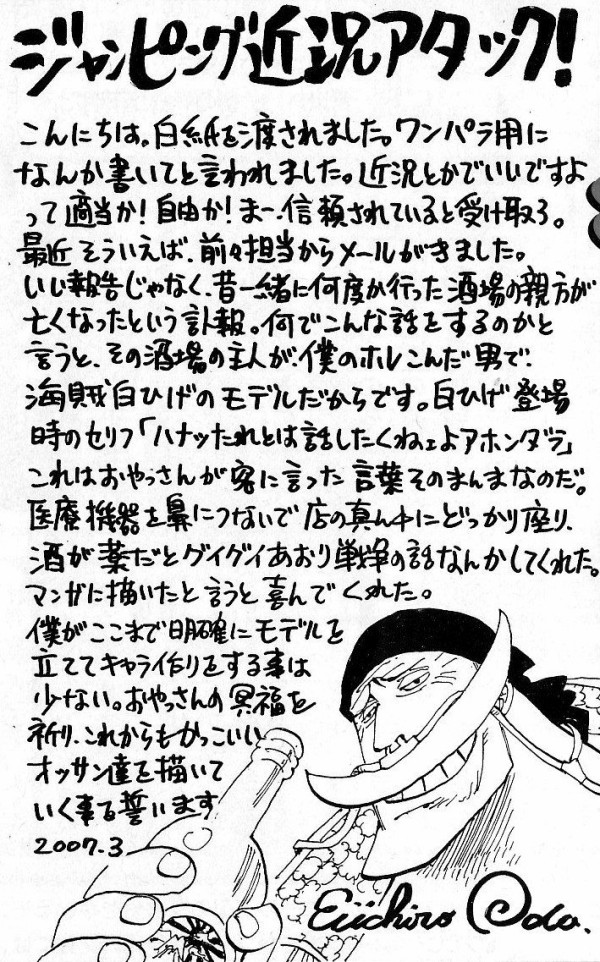 ジャンピング近況アタック!
こんにちは。白紙を渡されました。ワンパラ用に
なんか書いてと言われました。近況とかでいいですよ
って適当か!自由か!まー、信頼されていると受け取ろ。
最近そういえば、前々担当からメールがきました。
いい報告じゃなく、昔一緒に何度か行った酒場の親方が
亡くなったという訃報。何でこんな話をするのかと
言うと、その酒場の主人が、僕のホレこんだ男で、
海賊白ひげのモデルだからです。白ひげ登場
時のセリフ「ハナッたれとは話したくねェよアホンダラ」
これはおやっさんが客に言った言葉そのまんまなのだ。
医療機器を鼻につないで店の真ん中にどっかり座り、
酒が薬だとグイグイあおり戦争の話なんかしてくれた。
マンガに描いたと言うと喜んでくれた。
僕がここまで明確にモデルを
立ててキャラ作りをする事は
少ない。おやっさんの冥福を
祈り、これからもかっこいい
オッサン達を描いて
いく事を誓います
2007.3
Eiichiro Oda.